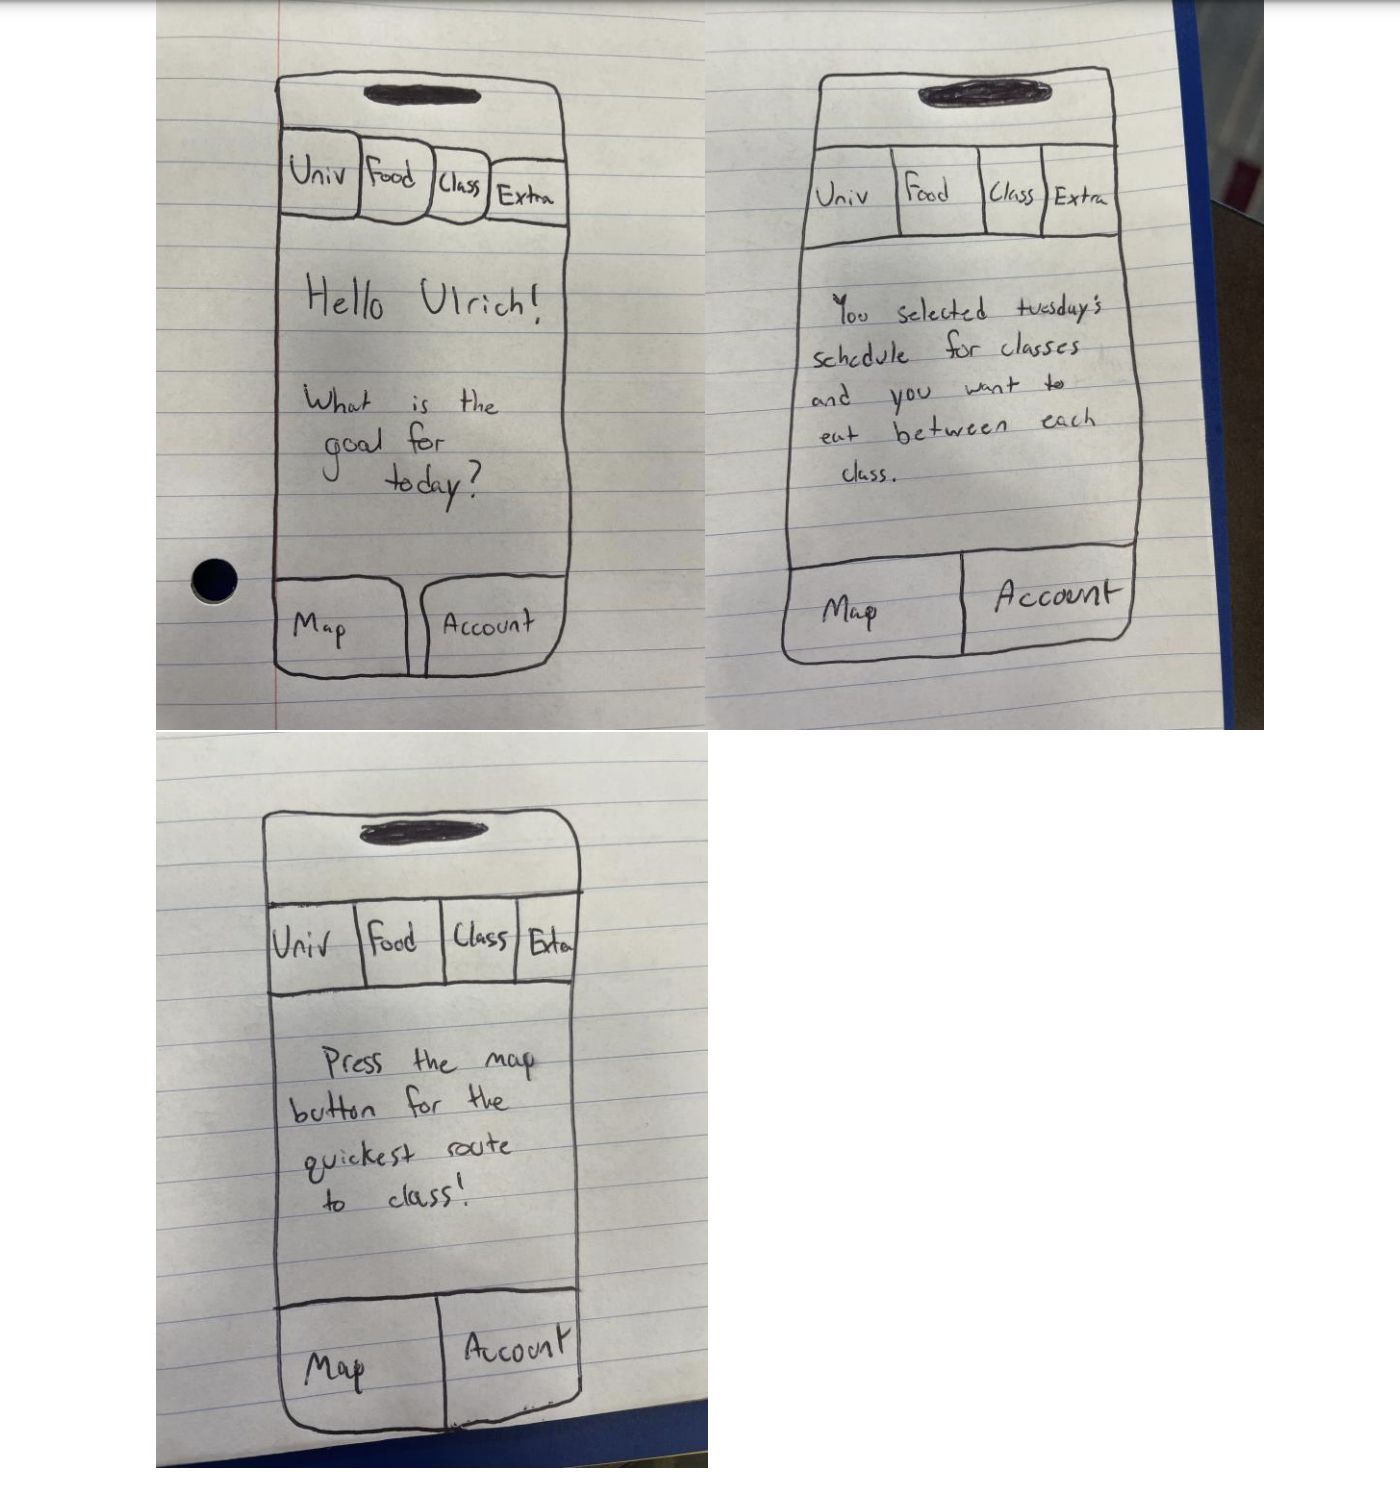 Univ Food Class Extra
Hello Ulrich!
What is the
goal for
today?
Map Account
Univ Food Class Extra
You selected tuesday's
schedule for classes
and you want to
eat between each
class.
Map Account
Univ Food Class Exta
Press the map
button for the
quickest route
to class!
Map Account